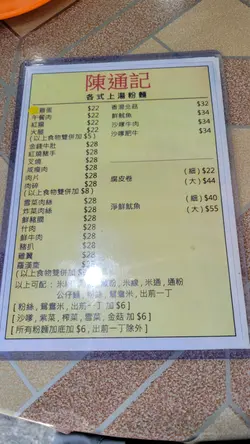 陳通記
各式上湯粉麵
雞蛋 $22
午餐肉 $22
紅腸 $22
火腿 $22
(以上食物雙併加 $5)
金錢牛肚 $28
紅燒豬手 $28
叉燒 $28
咸瘦肉 $28
肉片 $28
肉碎 $28
(以上食物雙併加 $8)
雪菜肉絲 $28
炸菜肉絲 $28
鮮豬膶 $28
什肉 $28
鮮牛肉 $28
豬扒 $28
雞翼 $28
羅漢齋 $28
(以上食物雙併加
$32
鮮魷魚 $34
沙嗲牛肉 $34
沙嗲肥牛 $34
腐皮卷 (細) $22
(大) $44
淨鮮魷魚 (細) $40
(大) $55
以上可配:
米線,米通,通粉
公仔麵,粉絲,鴛鴦米,出前一丁
[粉絲,鴛鴦米,出前一丁 加 $6]
[沙嗲,紫菜,榨菜,雪菜,金菇 加 $6]
[所有粉麵加底加 $6,出前一丁除外]